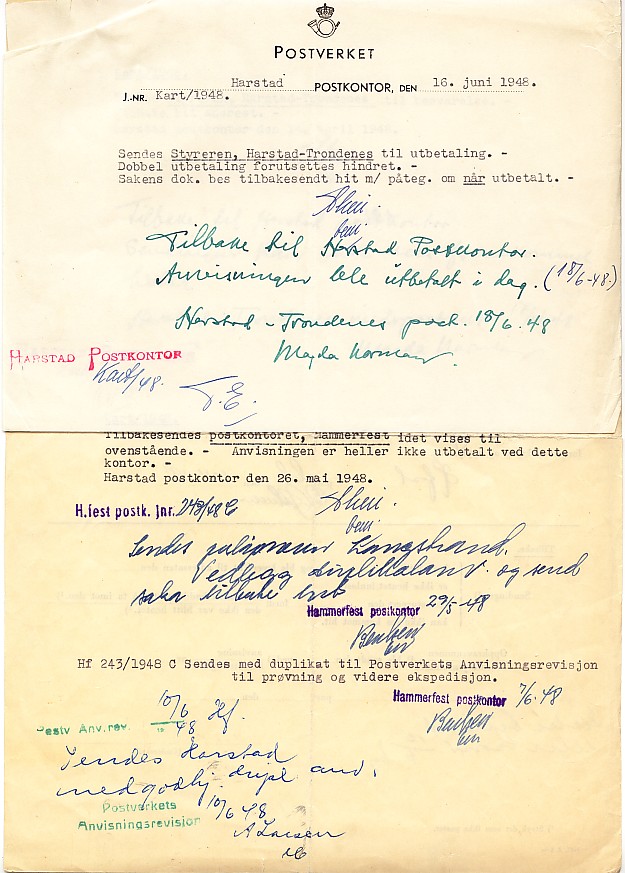 POSTVERKET
Harstad POSTKONTOR, DEN 16. juni 1948.
J.-NR. Kart/1948.
Sendes Styreren, Harstad-Trondenes til utbetaling. -
Dobbel utbetaling forutsettes hindret. -
Sakens dok. bes tilbakesendt hit m/ påteg. om når utbetalt. -
Tilbake til Harstad Postkontor.
Anvisningen ble utbetalt i dag. (18/6-48.)
Harstad - Trondenes post. 18/6. 48
Magda Norman
HARSTAD POSTKONTOR
Kart/48.
T.E.
Tilbakesendes postkontoret, Hammerfest idet vises til
ovenstående. - Anvisningen er heller ikke utbetalt ved dette
kontor. -
Harstad postkontor den 26. mai 1948.
H.fest postk. Jnr. 243/48 C
Sendes Langstrand.
Vedlegg og send
saken tilbake
Hammerfest postkontor 29/5-48
Hf 243/1948 C Sendes med duplikat til Postverkets Anvisningsrevisjon
til prøvning og videre ekspedisjon.
Hammerfest postkontor 7/6-48
Postv Anv.rev. 10/6 48 Hf.
Sendes Harstad
med godkj. dupl anv.
Postverkets
Anvisningsrevisjon
10/6 48
A Larsen